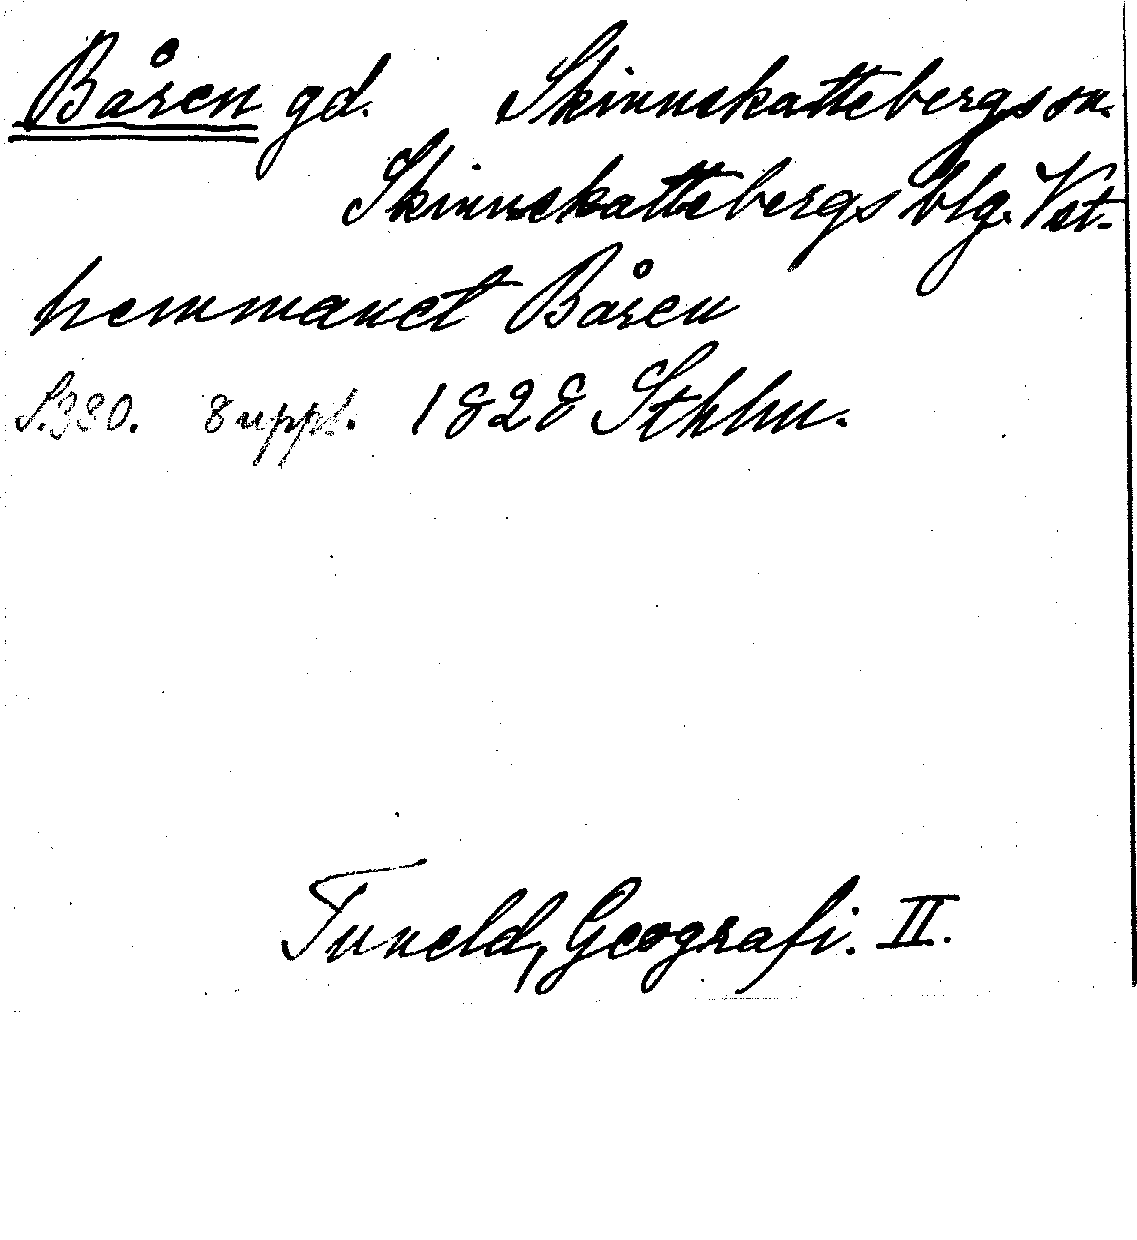 Båren gd. Skinnskattebergs sn.
Skinnskattebergs blg. Vst.
hemmanet Båren
S. 380. 8 uppl. 1828 Sthlm.
Tuneld, Geografi. II.